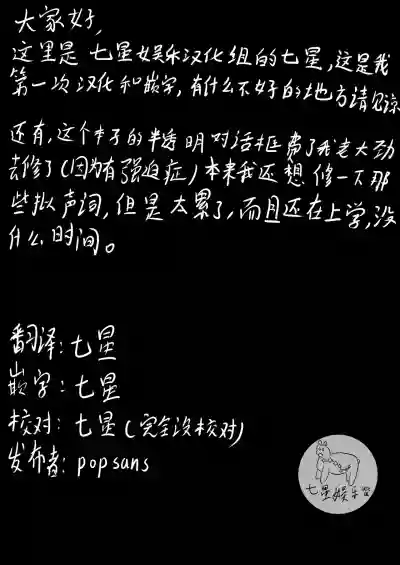 大家好,
这里是七星娱乐汉化组的七星,这是我
第一次汉化和嵌字,有什么不好的地方请见谅
还有,这个本子的半透明对话框费了我老大劲
去修了(因为有强迫症)本来我还想修一下那
些拟声词,但是太累了,而且还在上学,没
什么时间。
翻译:七星
嵌字:七星
校对:七星(完全没校对)
发布者:popsans
七星娱乐